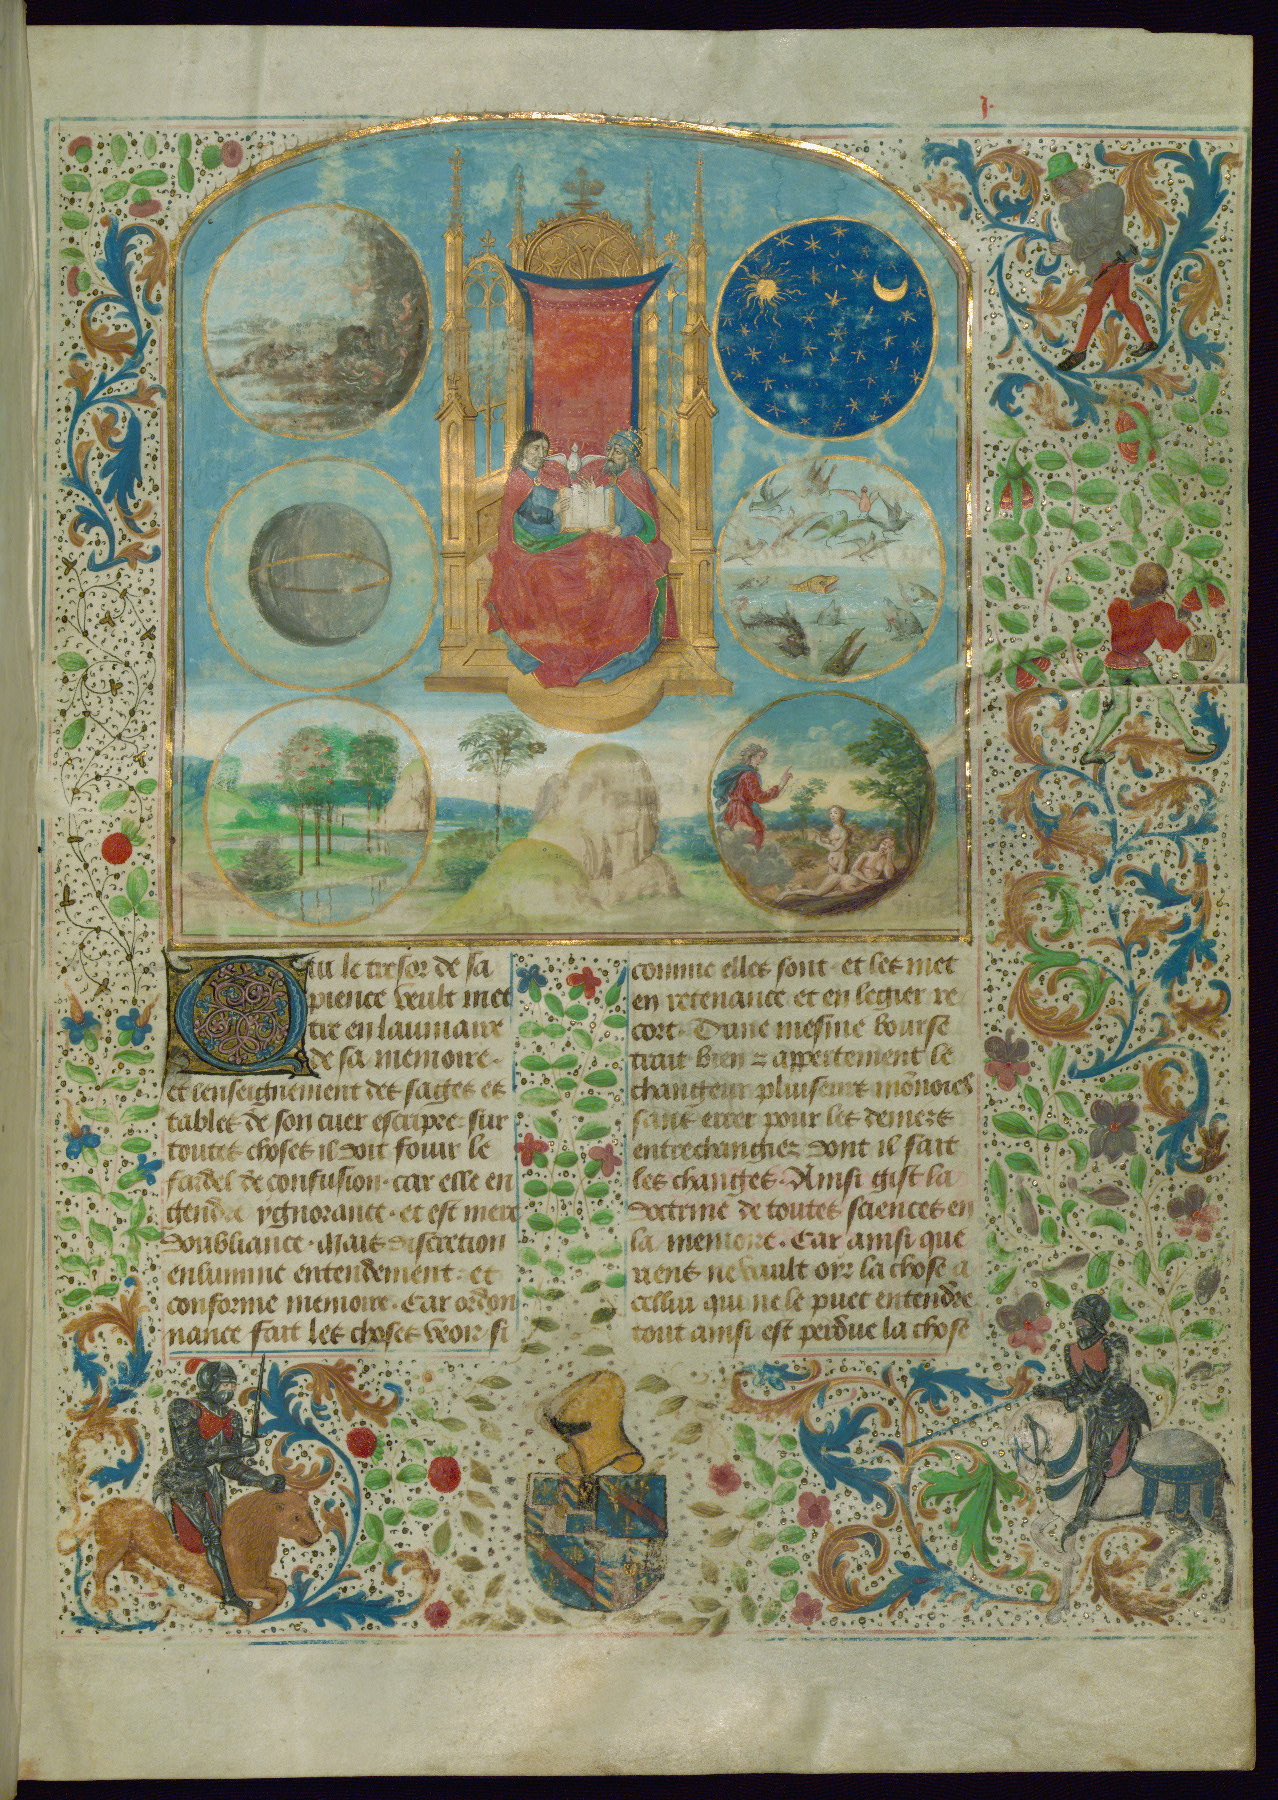 j.
Qui le tresor de sa
pience veult met
tre en laumaire
de sa memoire.
et lenseignement des sages es
tables de son cuer escripre. sur
toutes choses il doit fouir le
fardel de confusion. car elle en
gendre ygnorance. et est mere
doubliance. Mais discretion
enlumine entendement. et
conforme memoire. Car ordon
nance fait les choses veoir si
comme elles sont. et les met
en retenance. et en legier re
cort. Dune mesme bourse
trait bien ⁊ appertement le
changeur pluiseurs mōnoies
sans errer pour les deniers
entrechangiez dont il fait
les changes. Ainsi gist la
doctrine de toutes sciences en
la memoire. Car ainsi que
riens ne vault oyr la chose a
cellui qui ne le puet entendre
tout ainsi est perdue la chose